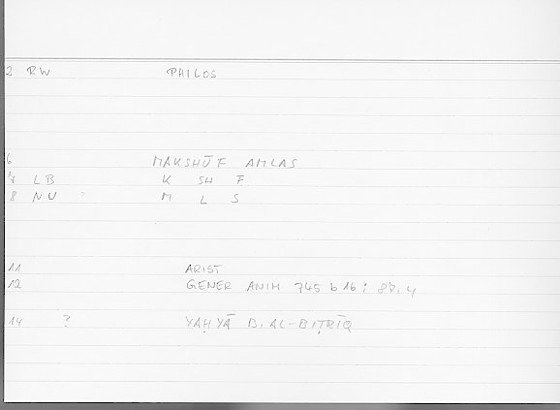 2 RW PHILOS
6 MAKSHŪF AMLAS
7 LB K SH F
8 NU ? M L S
11 ARIST
12 GENER ANIM 745 b 16 ; 87, 4
14 ? YAḤYĀ B. AL-BIṬRĪQ